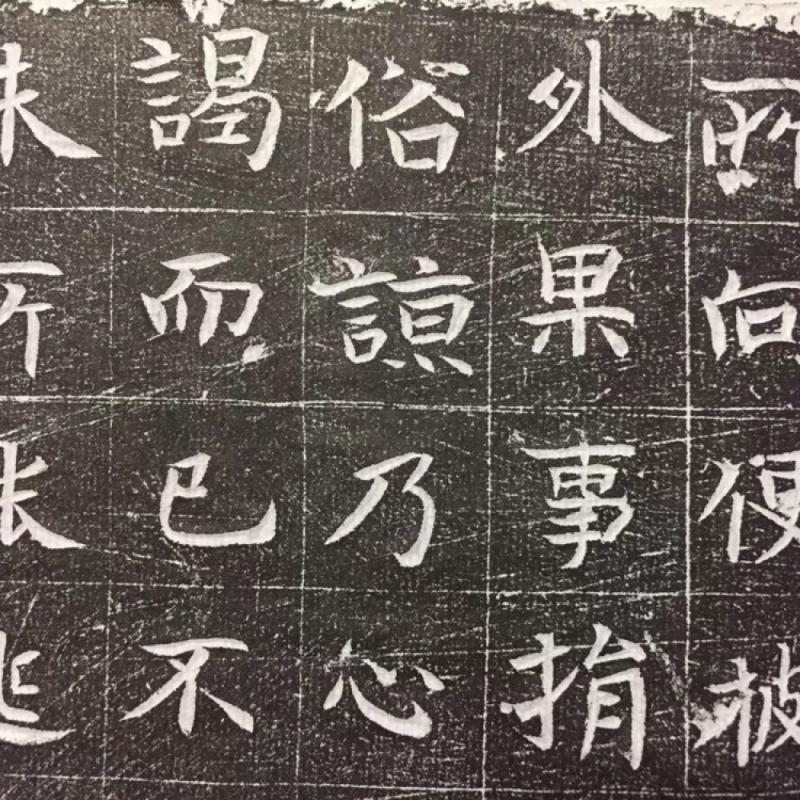 所向便被
外果事捐
俗諒乃心
謁而已不